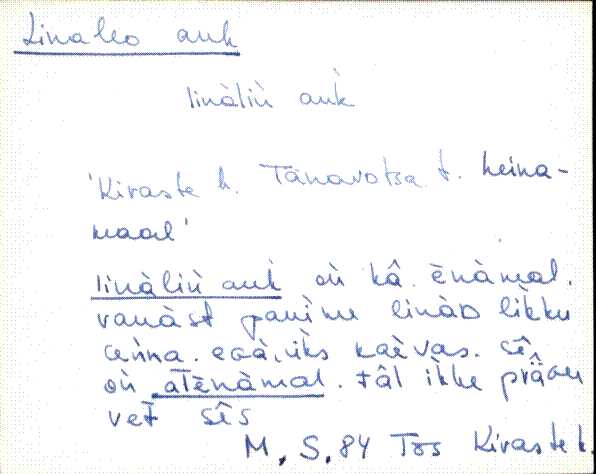 Linaleo auk
linàliǹ auk̀
'Kiraste k. Tanavotsa t. heina-
maal'
linàliǹ auk̀ oǹ kâ ēnàmal.
vanàst panìme linàD likku
oǹ aTēnàmal. tâl ikke prǟou
vet sîs
M. S. 84 Tõs Kiraste k.